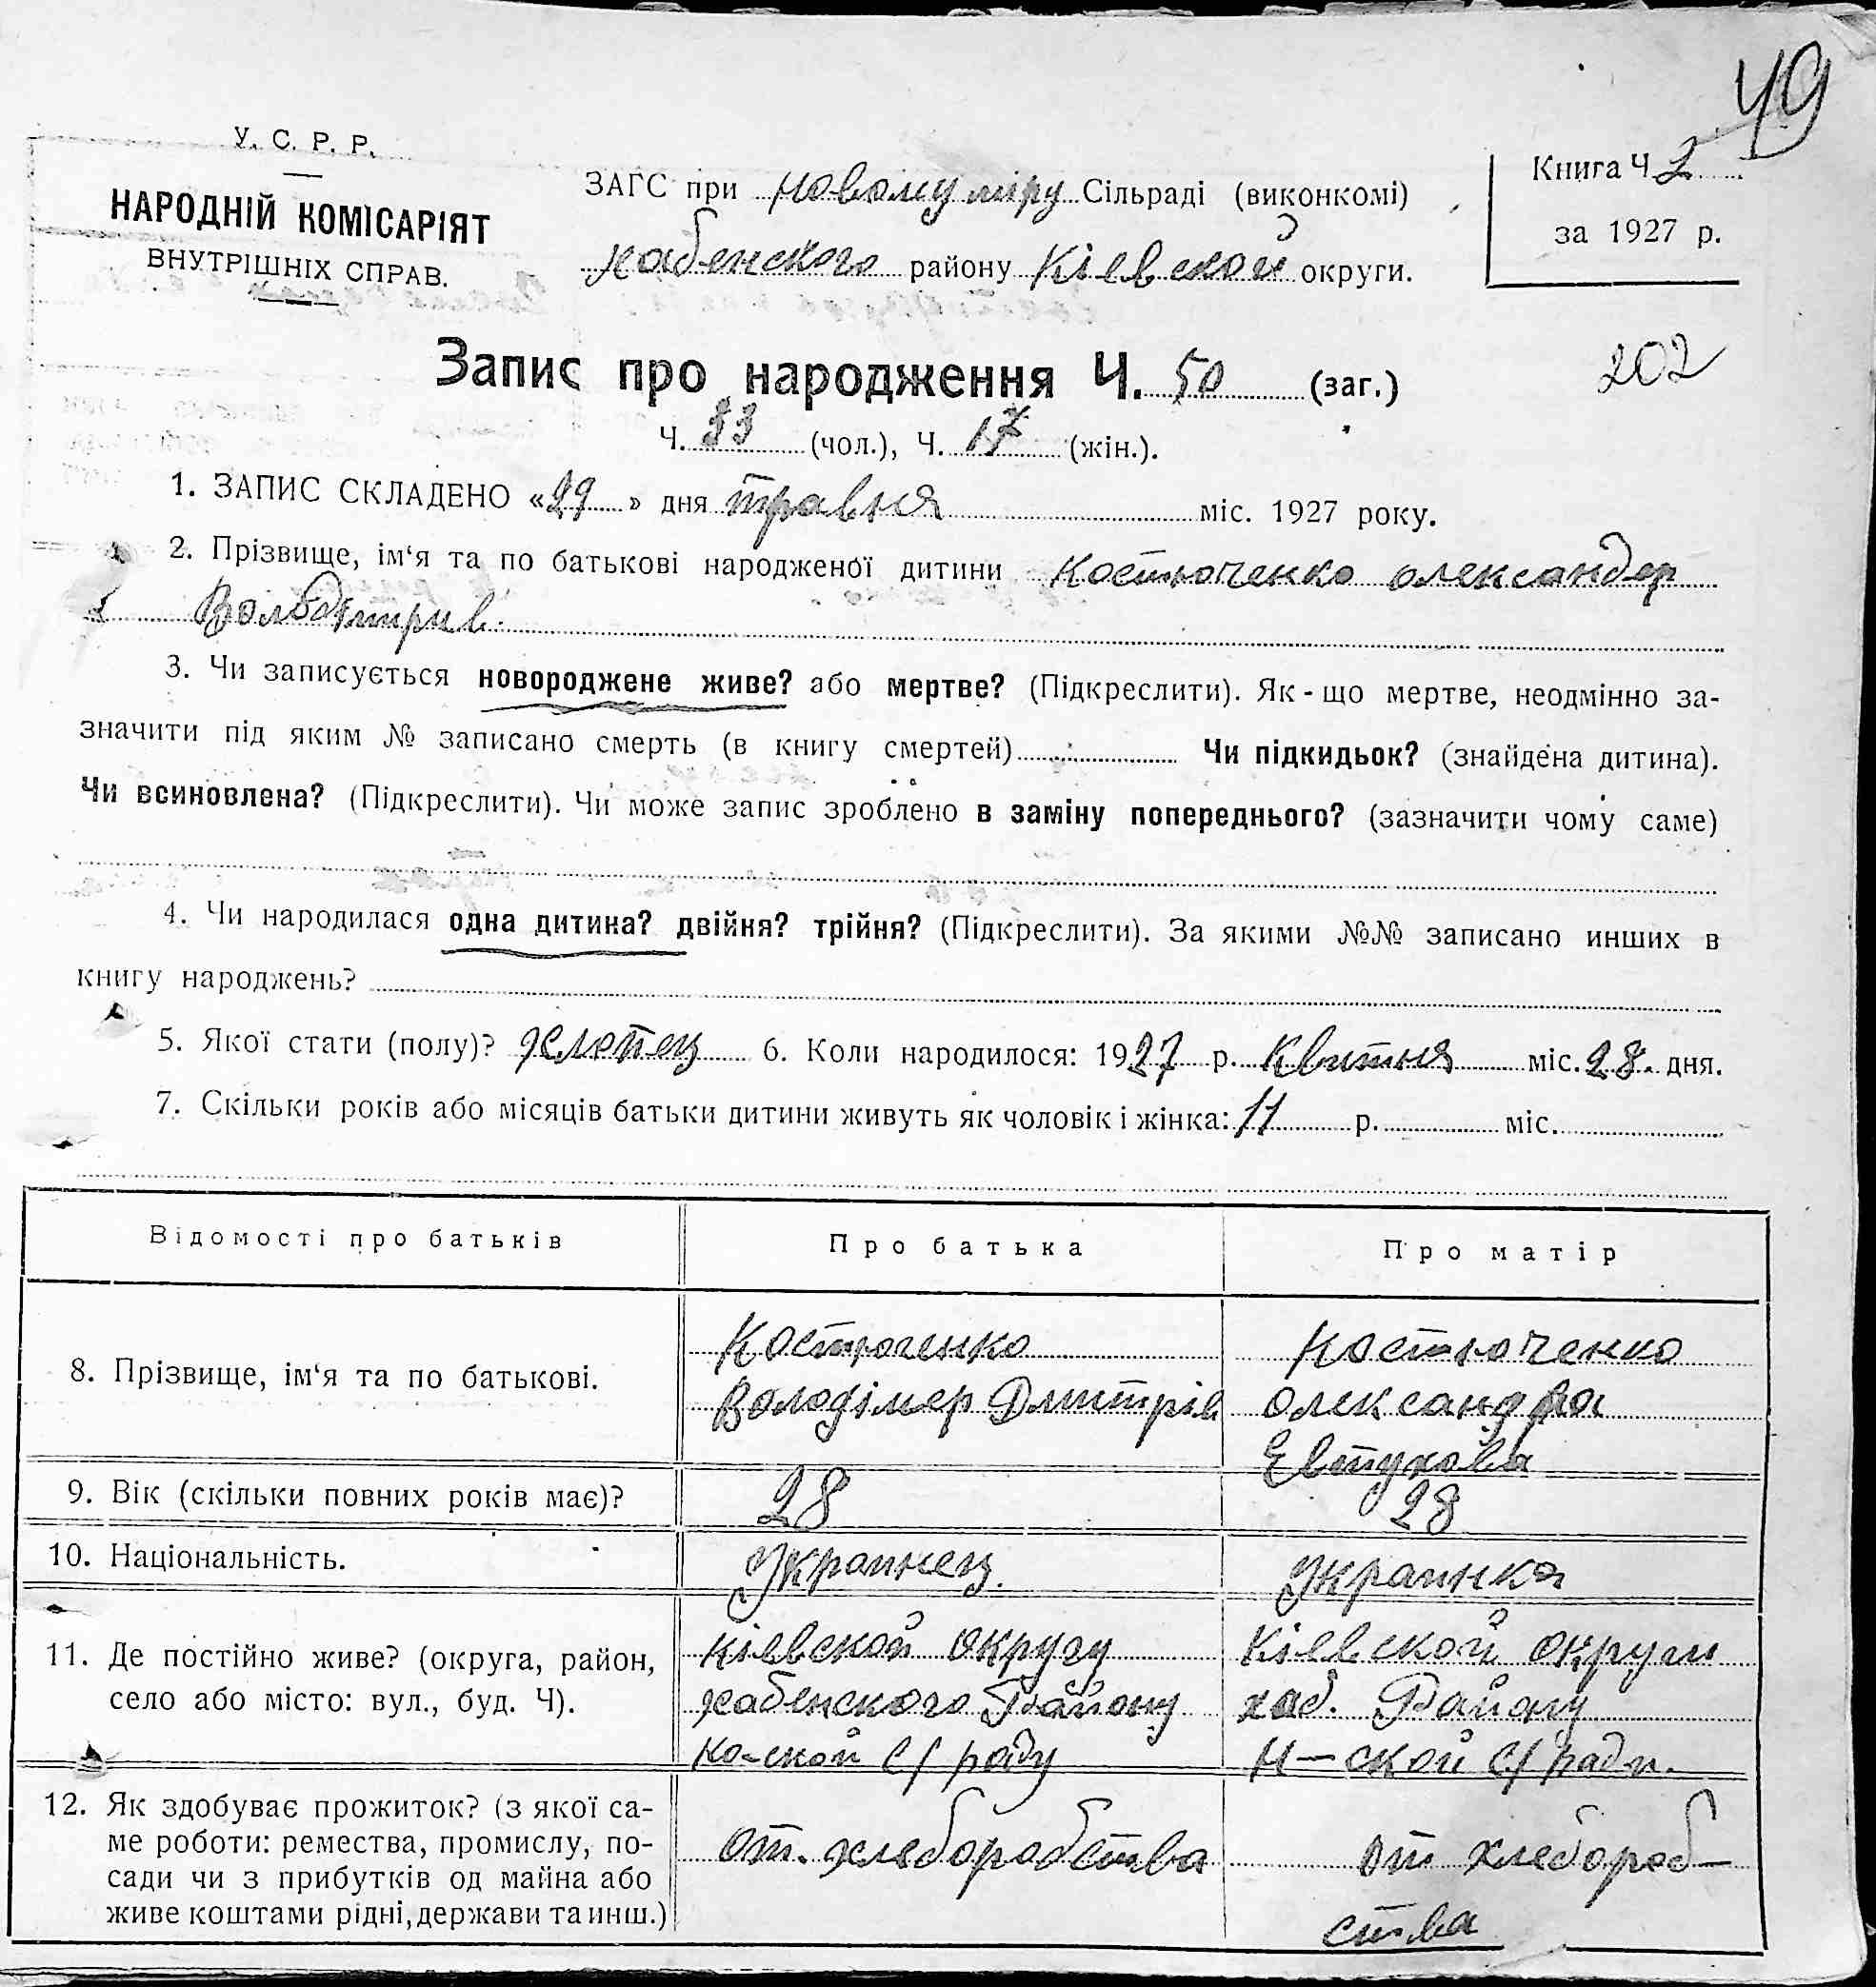 49
У. С. Р. Р.
НАРОДНІЙ КОМІСАРІЯТ
ВНУТРІШНІХ СПРАВ.
ЗАГС при новому миру Сільраді (виконкомі)
хабенского району Кіевской округи.
Книга Ч 2
за 1927 р.
202
Запис про народження Ч. 50 (заг.)
Ч. 33 (чол.), Ч. 17 (жін.).
1. ЗАПИС СКЛАДЕНО «29» дня травня міс. 1927 року.
2. Прізвище, ім‘я та по батькові народженої дитини Костюченко олександер
Володимрив.
3. Чи записується новороджене живе? або мертве? (Підкреслити). Як-що мертве, неодмінно за-
значити під яким № записано смерть (в книгу смертей) Чи підкидьок? (знайдена дитина).
Чи всиновлена? (Підкреслити). Чи може запис зроблено в заміну попереднього? (зазначити чому саме)
4. Чи народилася одна дитина? двійня? трійня? (Підкреслити). За якими №№ записано инших в
книгу народжень?
5. Якої стати (полу)? хлопец 6. Коли народилося: 1927 р. Квитня міс. 28. дня.
7. Скільки років або місяців батьки дитини живуть як чоловік і жінка: 11 р. міс.
Відомості про батьків Про батька Про матір
8. Прізвище, ім‘я та по батькові.
Костюченко
Володімер Дмитрів
Костюченко
олександра
Евтухова
9. Вік (скільки повних років має)? 28 28
10. Національність. Украинец. Украинка
11. Де постійно живе? (округа, район,
село або місто: вул., буд. Ч).
Кіевской округу
хабенского Району
но-ской с/раду
Кіевской округи
хаб. Району
Н-ской с/ради.
12. Як здобуває прожиток? (з якої са-
ме роботи: ремества, промислу, по-
сади чи з прибутків од майна або
живе коштами рідні, держави та инш.)
от. хлеборобства
от хлебороб-
ства